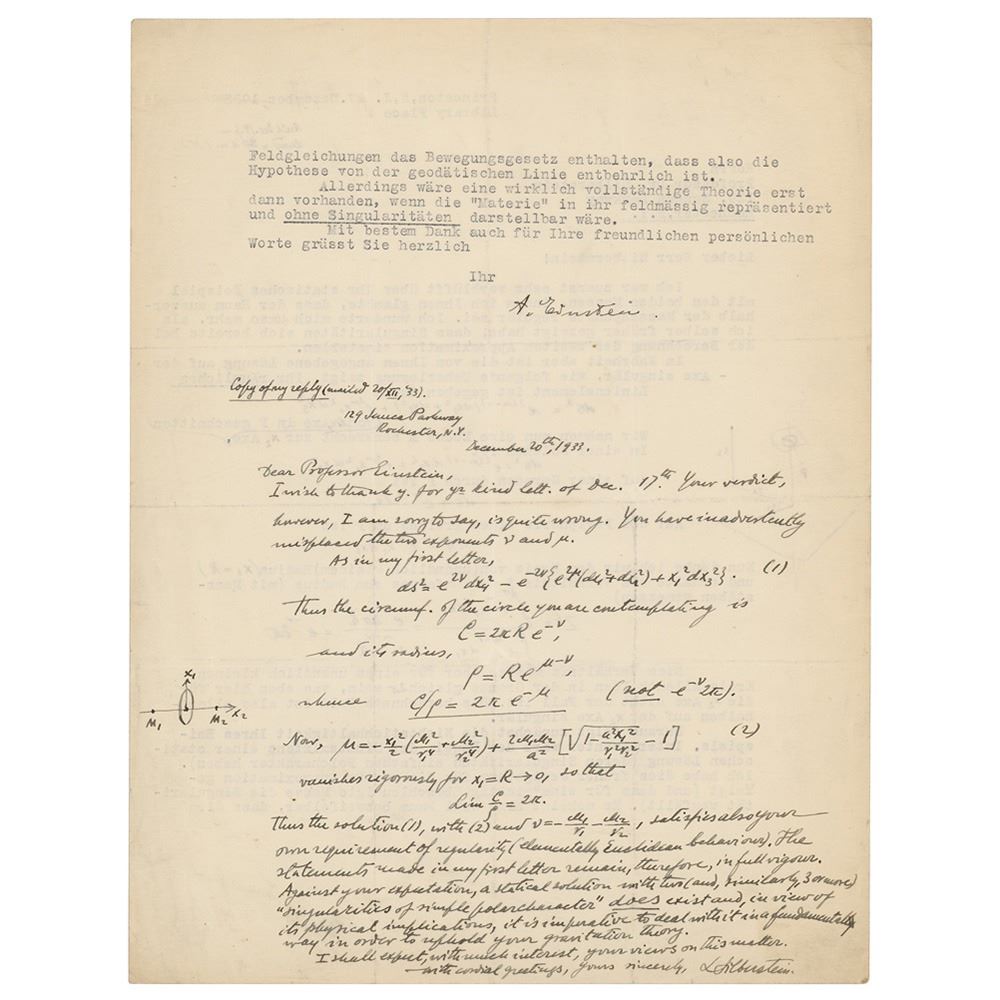 Feldgleichungen das Bewegungsgesetz enthalten, dass also die
Hypothese von der geodätischen Linie entbehrlich ist.
Allerdings wäre eine wirklich vollständige Theorie erst
dann vorhanden, wenn die "Materie" in ihr feldmässig repräsentiert
und ohne Singularitäten darstellbar wäre.
Mit bestem Dank auch für Ihre freundlichen persönlichen
Worte grüsst Sie herzlich
Ihr
A. Einstein.
Copy of my reply (mailed 20/XII, '33).
129 Seneca Parkway
Rochester, N.Y.
December 20th, 1933.
Dear Professor Einstein,
I wish to thank y. for yr kind lett. of Dec. 17th. Your verdict,
however, I am sorry to say, is quite wrong. You have inadvertently
misplaced the two exponents ν and μ.
As in my first letter,
ds² = e^{2ν}dx₄² − e^{−2ν}{e^{2μ}(dx₁²+dx₂²)+x₁²dx₃²}. (1)
Thus the circumf. of the circle you are contemplating is
C = 2πR e^{−ν},
and its radius,
ρ = R e^{μ−ν},
whence C/ρ = 2π e^{−μ} (not e^{−ν}2π).
x₁
M₁ M₂ x₂
Now, μ = −x₁²/2 (M₁²/r₁⁴ + M₂²/r₂⁴) + 2M₁M₂/a² [√(1−a²x₁²/r₁²r₂²) − 1] (2)
vanishes rigorously for x₁=R→0, so that
Lim C/ρ = 2π.
Thus the solution (1), with (2) and ν = −M₁/r₁ − M₂/r₂, satisfies also your
own requirement of regularity (elementally Euclidean behaviour). The
statements made in my first letter remain, therefore, in full vigour.
Against your expectation, a statical solution with two (and, similarly, 3 or more)
"singularities of simple polar character" does exist and, in view of
its physical implications, it is imperative to deal with it in a fundamentally
way in order to uphold your gravitation theory.
I shall expect, with much interest, your views on this matter.
With cordial greetings, yours sincerely, L. Silberstein.